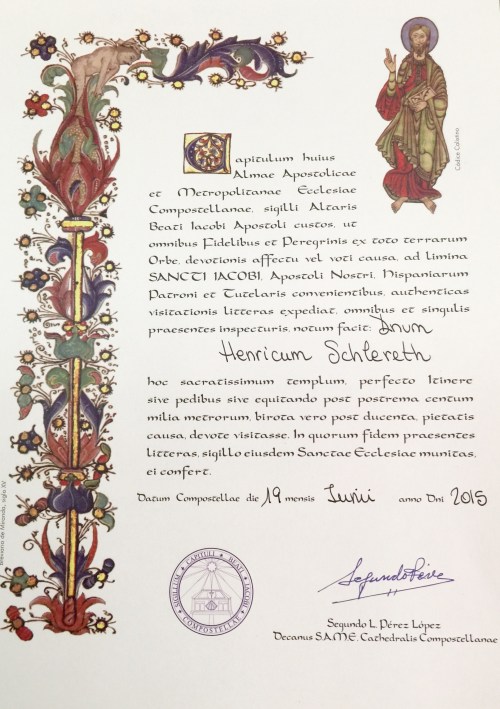 Capitulum huius
Almae Apostolicae
et Metropolitanae Ecclesiae
Compostellanae, sigilli Altaris
Beati Iacobi Apostoli custos, ut
omnibus Fidelibus et Peregrinis ex toto terrarum
Orbe, devotionis affectu vel voti causa, ad limina
SANCTI IACOBI, Apostoli Nostri, Hispaniarum
Patroni et Tutelaris convenientibus, authenticas
visitationis litteras expediat, omnibus et singulis
praesentes inspecturis, notum facit: Dnum
Henricum Schlereth
hoc sacratissimum templum, perfecto Itinere
sive pedibus sive equitando post postrema centum
milia metrorum, birota vero post ducenta, pietatis
causa, devote visitasse. In quorum fidem praesentes
litteras, sigillo eiusdem Sanctae Ecclesiae munitas,
ei confert.
Datum Compostellae die 19 mensis Iunii anno Dni 2015
SIGILLUM CAPITULI BEATI IACOBI COMPOSTELLAE
Segundo Pérez
Segundo L. Pérez López
Decanus S.A.M.E. Cathedralis Compostellanae
Códice Calixtino
Breviario de Miranda, siglo XV